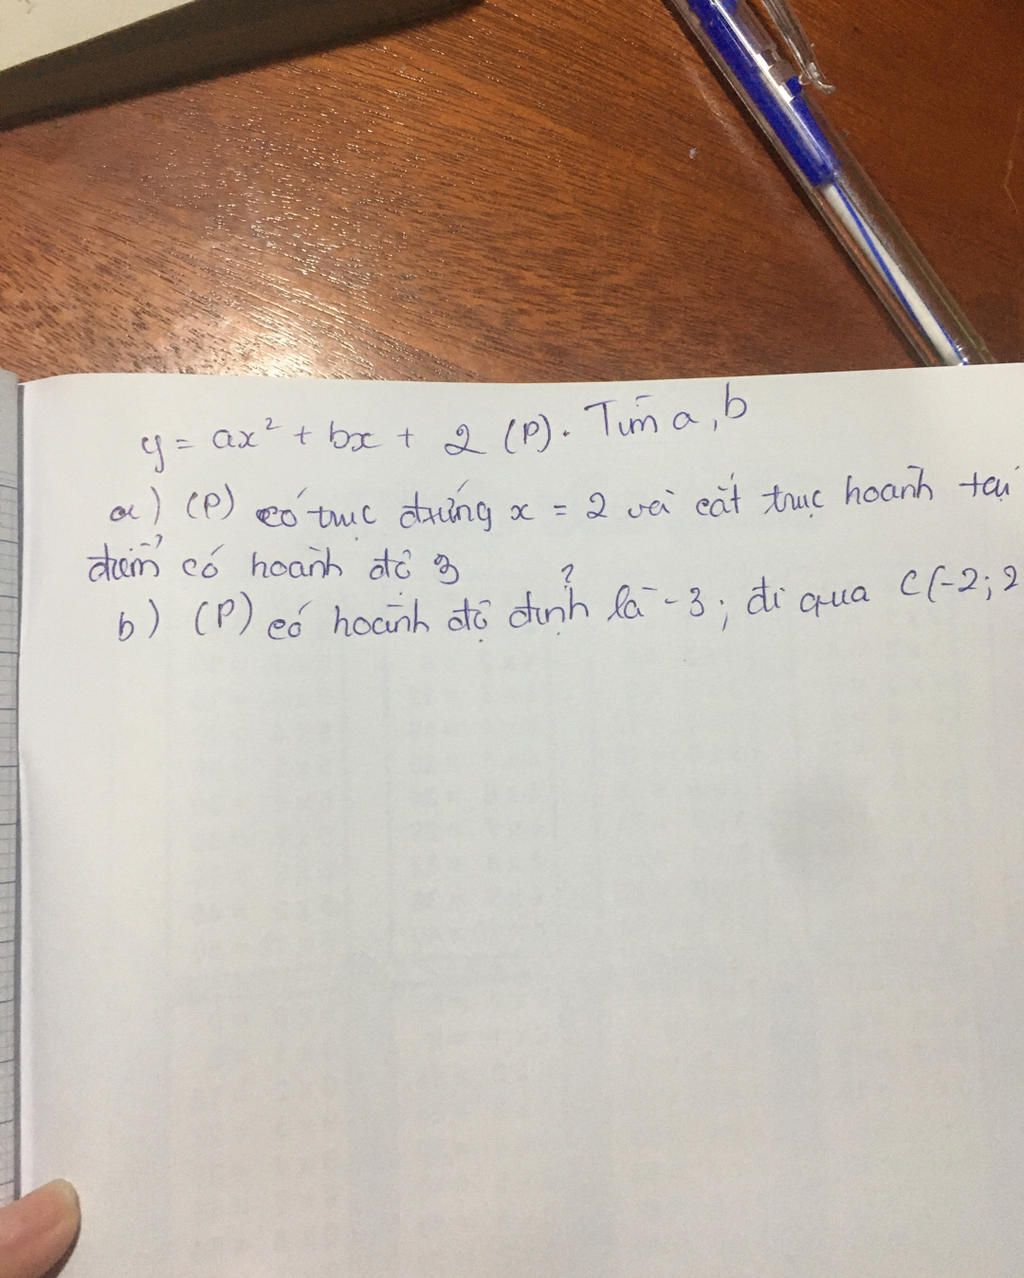 y = ax² + bx + 2 (P). Tìm a, b
a) (P) có trục đứng x = 2 và cắt trục hoành tại
điểm có hoành độ 3
b) (P) có hoành độ đỉnh là -3; đi qua C(-2; 2